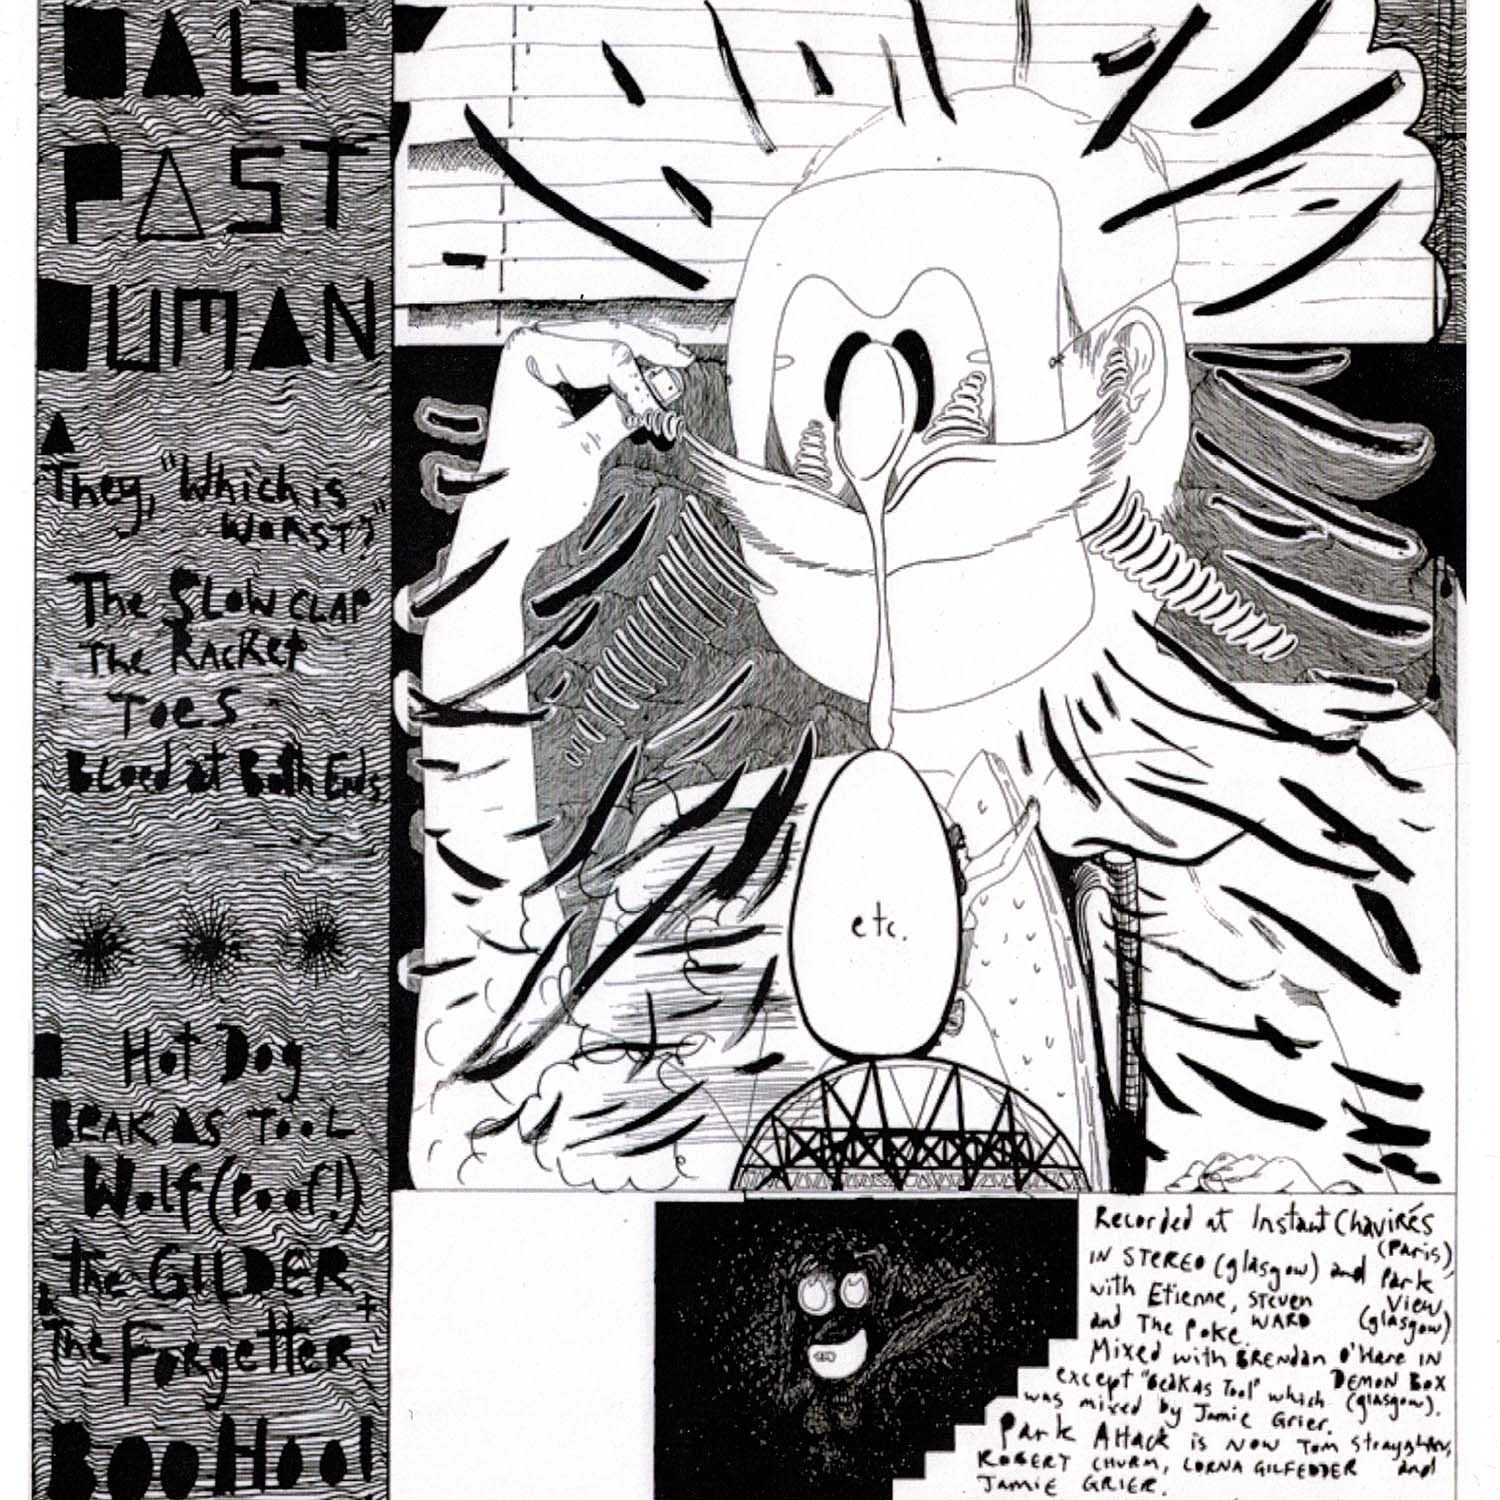 HALF
PAST
HUMAN
They, "Which is
WORST?"
The SLOW CLAP
The RACKet
Toes.
Bleed at Both Ends
Hot Dog
BEAK AS TOOL
Wolf (Poof!)
the GILDER
+
The Forgetter
BooHoo!
etc.
Recorded at Instant Chavirés
(Paris),
IN STEREO (glasgow) and Park
View,
with Etienne, Steven
WARD
(glasgow)
and The Poke.
Mixed with BRENdan O'Hare IN
DEMON BOX
except "Beak as Tool" which (glasgow).
was mixed by Jamie Grier.
Park Attack is NOW Tom Straughan,
ROBERT CHURM, LORNA GILFEDDER and
JAMIE GRIER.